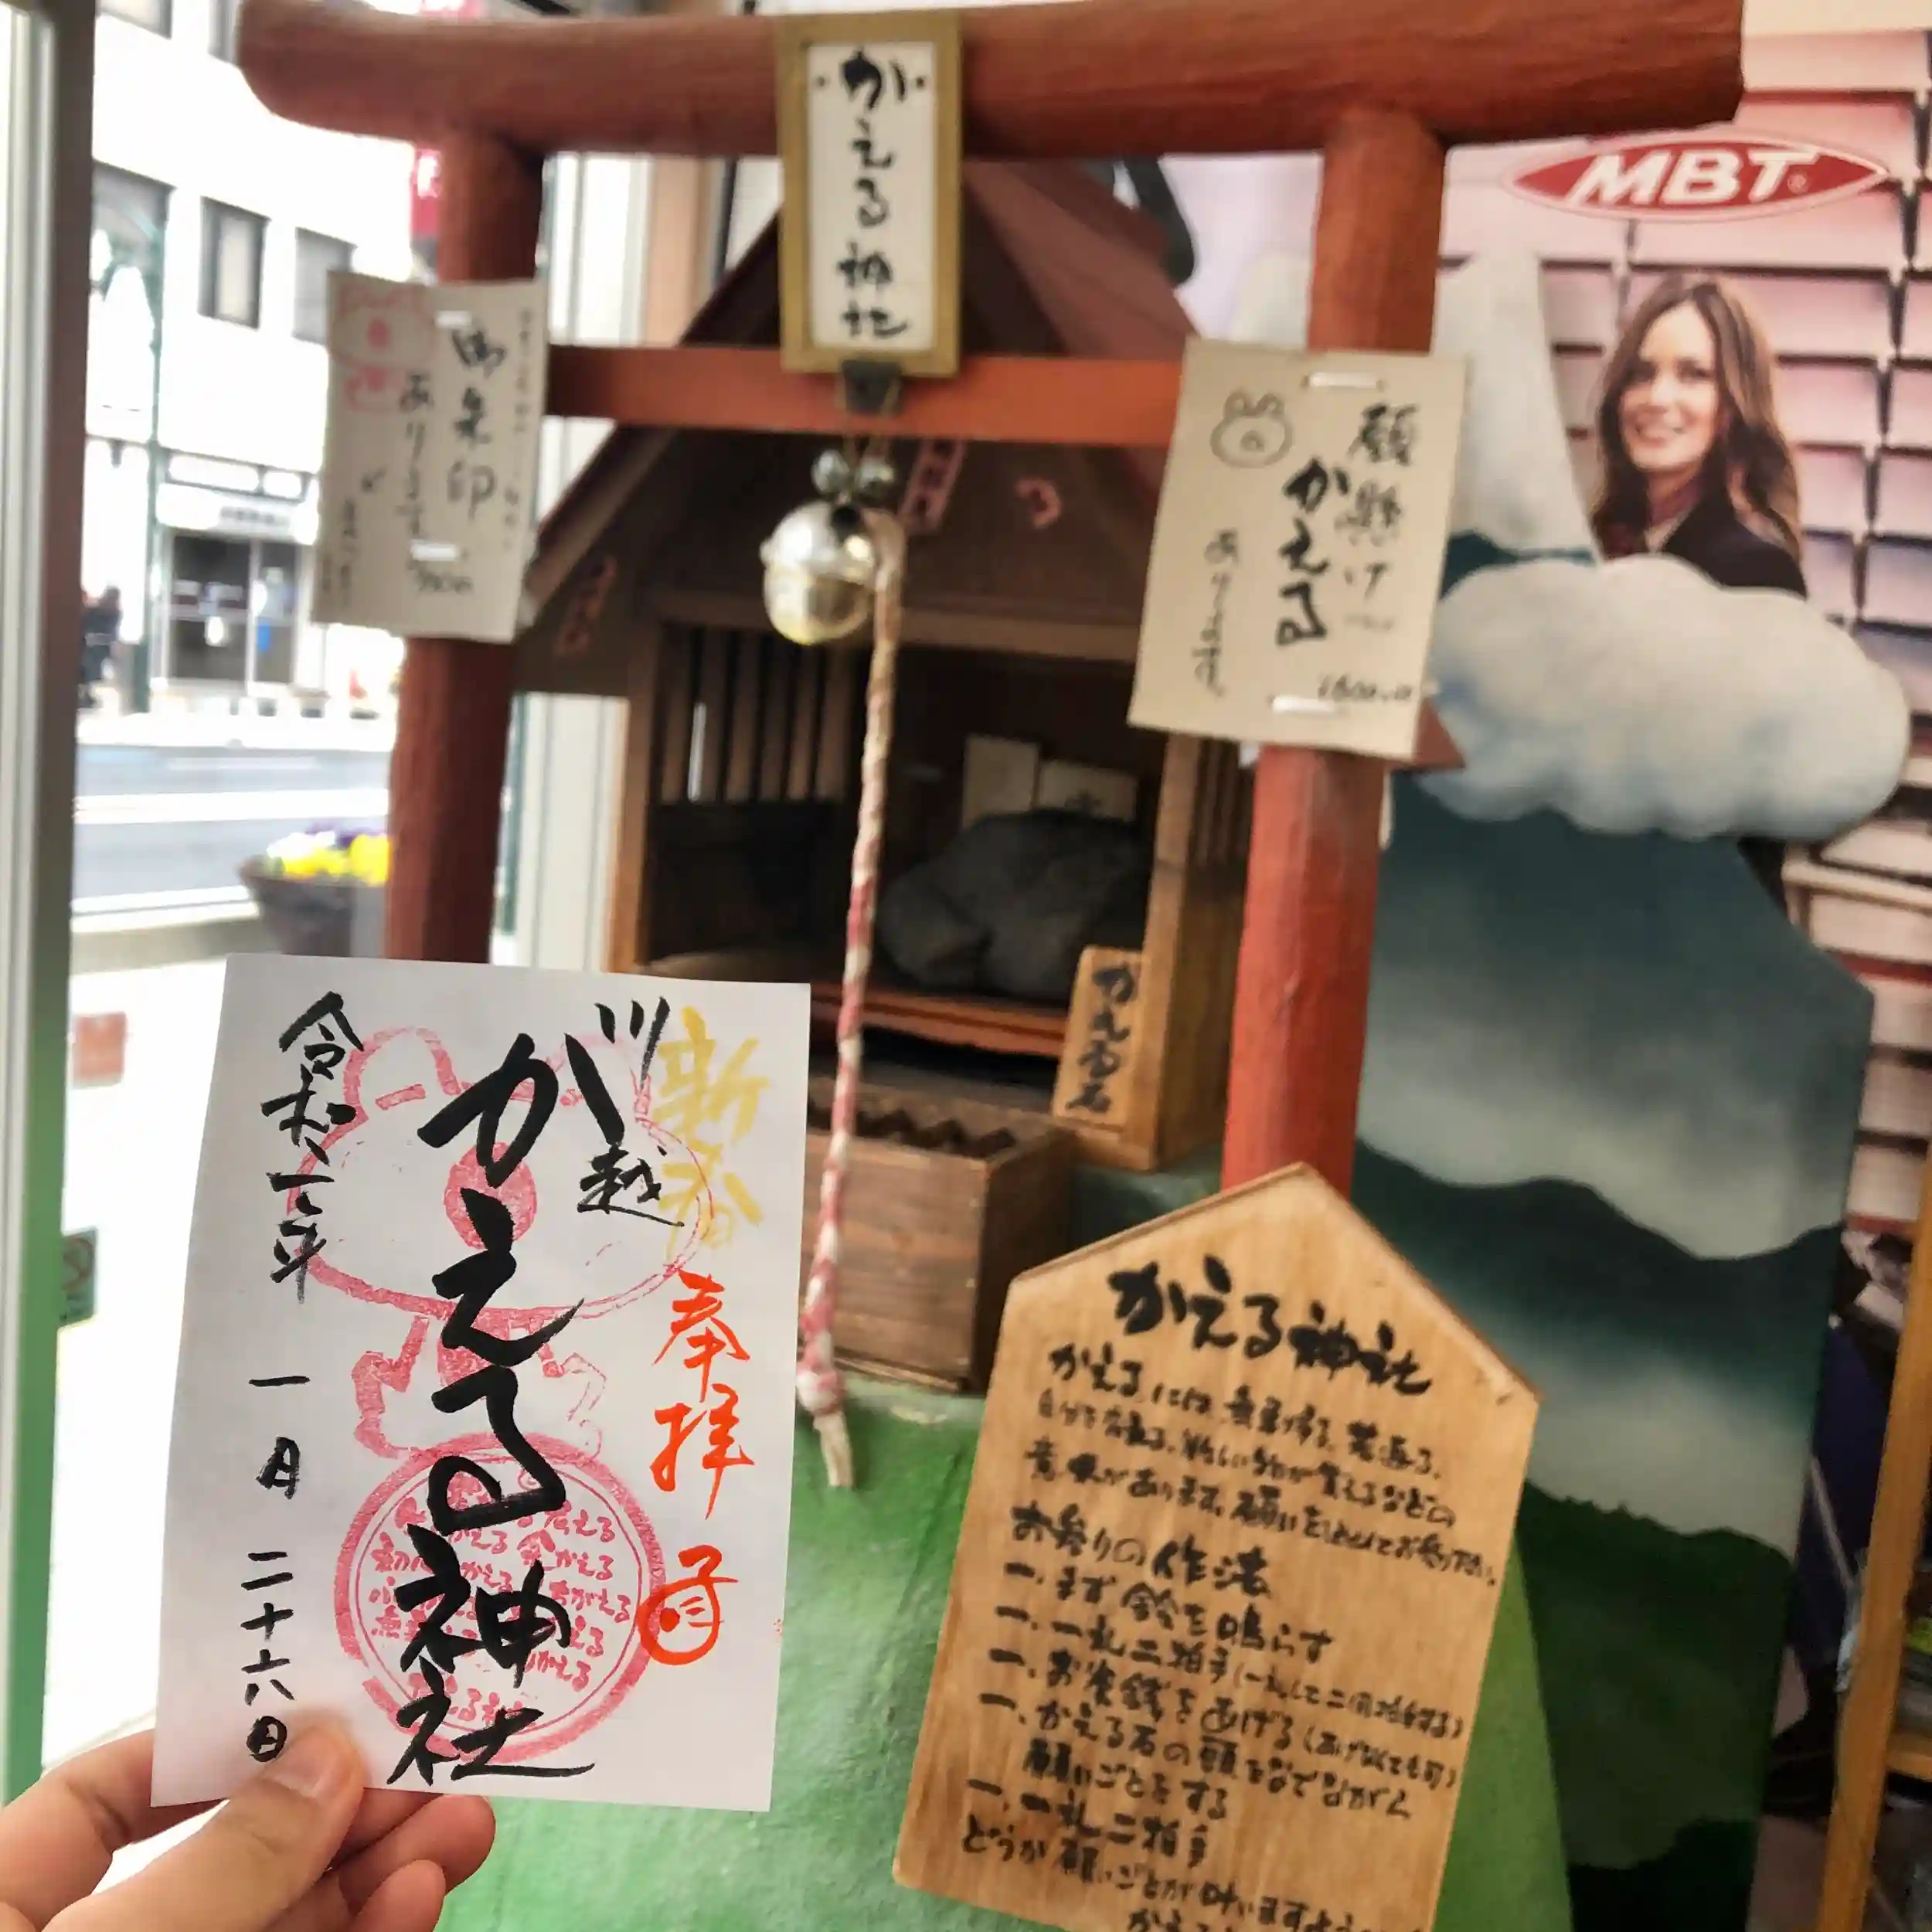 かえる神社
MBT
御朱印
あります
願懸け
かえる
あります
かえる石
新春
奉拝
川越
かえる神社
令和二年
一月二十六日
かえる神社
かえるには、無事帰る、若返る、
意味があります。願いを
お参りの作法
一、まず鈴を鳴らす
一、一礼二拍手(一礼して二回拍手する)
一、お賽銭をあげる(あげなくても可)
一、かえる石の頭をなでながら
願いごとをする
一、一礼二拍手
どうか願いごとが叶いますように